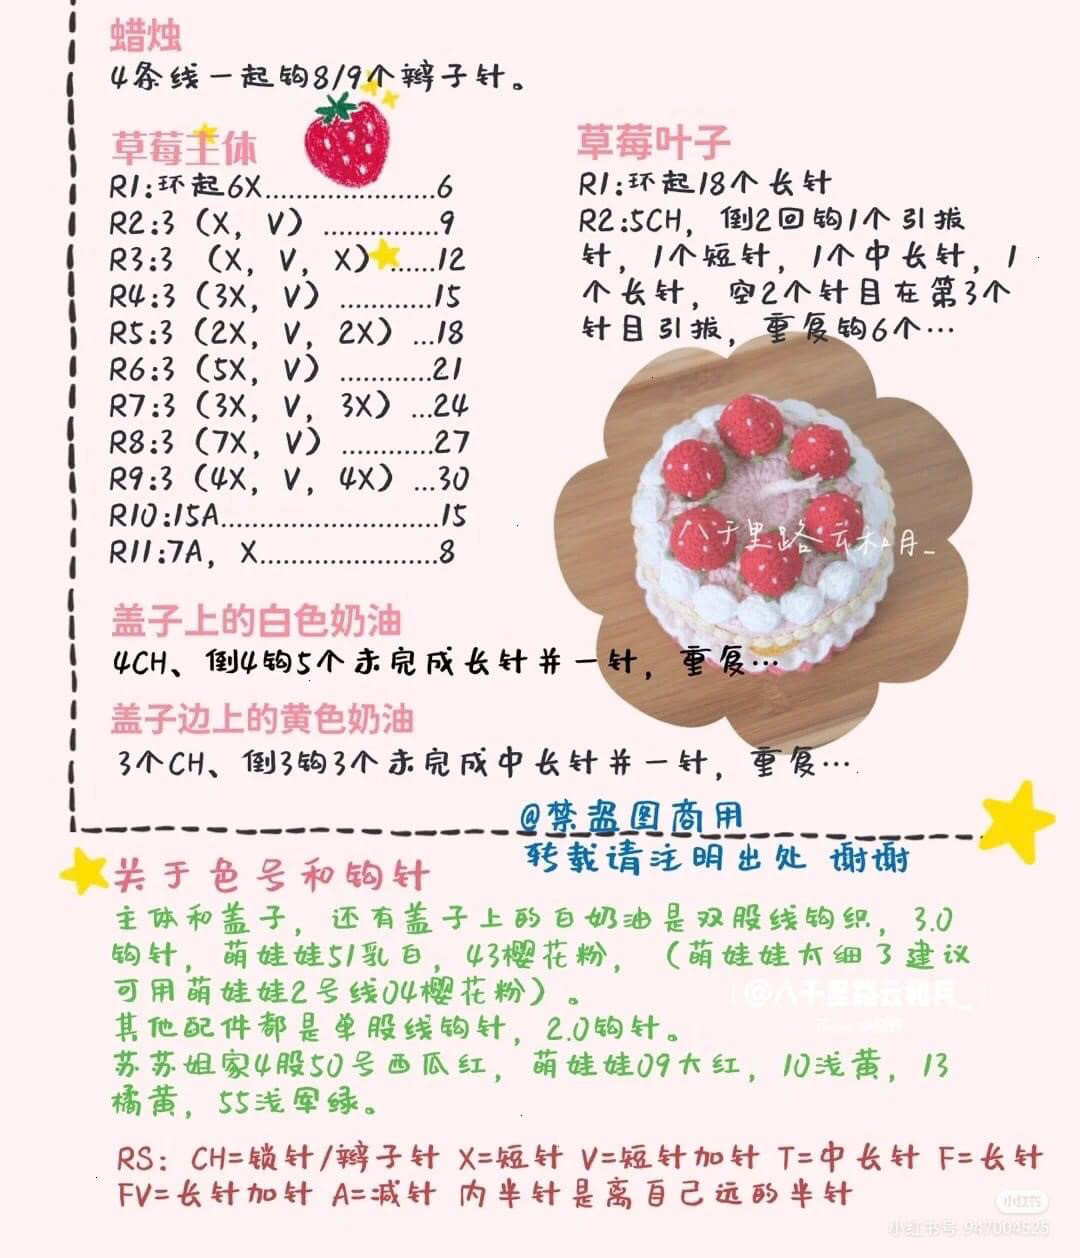 蜡烛
4条线一起钩8/9个辫子针。
草莓主体
R1:环起6X.....................6
R2:3（X，V）..............9
R3:3（X，V，X）......12
R4:3（3X，V）............15
R5:3（2X，V，2X）...18
R6:3（5X，V）............21
R7:3（3X，V，3X）...24
R8:3（7X，V）............27
R9:3（4X，V，4X）...30
R10:15A............................15
R11:7A，X.......................8
草莓叶子
R1:环起18个长针
R2:5CH，倒2回钩1个引拔
针，1个短针，1个中长针，1
个长针，空2个针目在第3个
针目引拔，重复钩6个…
八千里路云和月_
盖子上的白色奶油
4CH、倒4钩5个未完成长针并一针，重复…
盖子边上的黄色奶油
3个CH、倒3钩3个未完成中长针并一针，重复…
@禁盗图商用
转载请注明出处 谢谢
关于色号和钩针
主体和盖子，还有盖子上的白奶油是双股线钩织，3.0
钩针，萌娃娃51乳白，43樱花粉，（萌娃娃太细了建议
可用萌娃娃2号线04樱花粉）。
@八千里路云和月_
其他配件都是单股线钩针，2.0钩针。
苏苏姐家4股50号西瓜红，萌娃娃09大红，10浅黄，13
橘黄，55浅军绿。
RS：CH=锁针/辫子针 X=短针 V=短针加针 T=中长针 F=长针
FV=长针加针 A=减针 内半针是离自己远的半针
小红书
小红书号:947004525